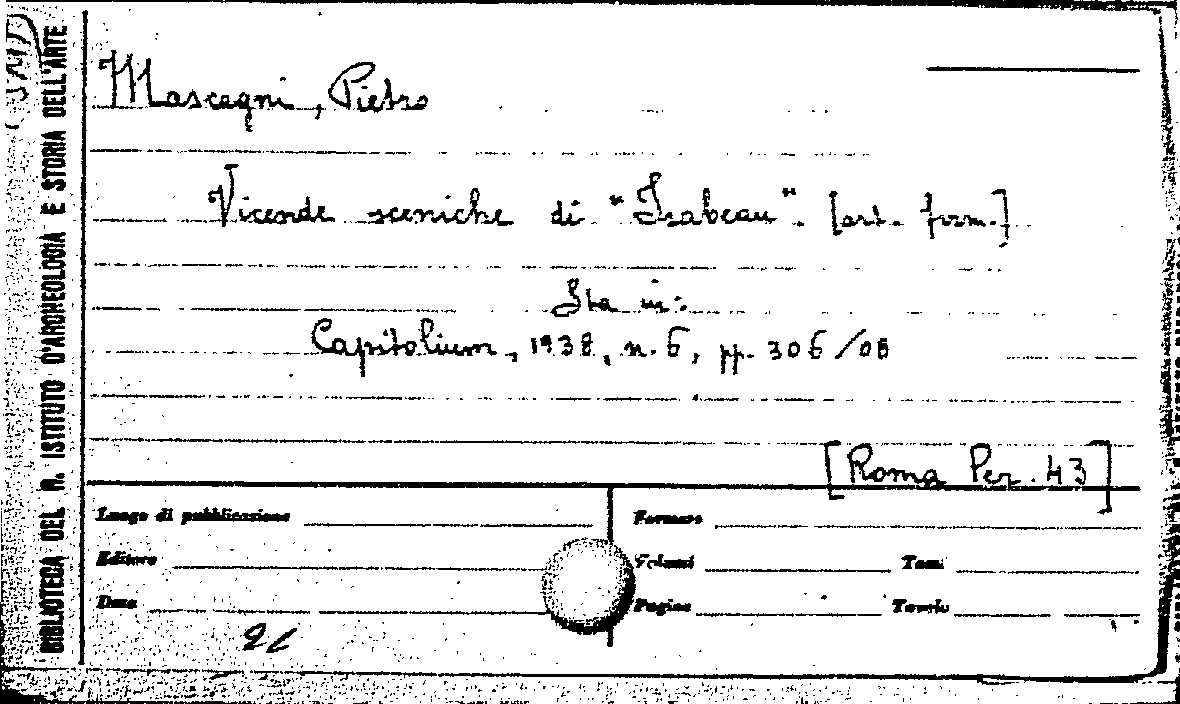 BIBLIOTECA DEL R. ISTITUTO D'ARCHEOLOGIA E STORIA DELL'ARTE
Mascagni, Pietro
Vicende sceniche di "Isabeau". [art. firm.]
Sta in:
Capitolium, 1938, n. 6, pp. 306/08
[Roma Per. 43]
Luogo di pubblicazione
Formato
Editore
Volumi
Tomi
Data
Pagine
Tavole